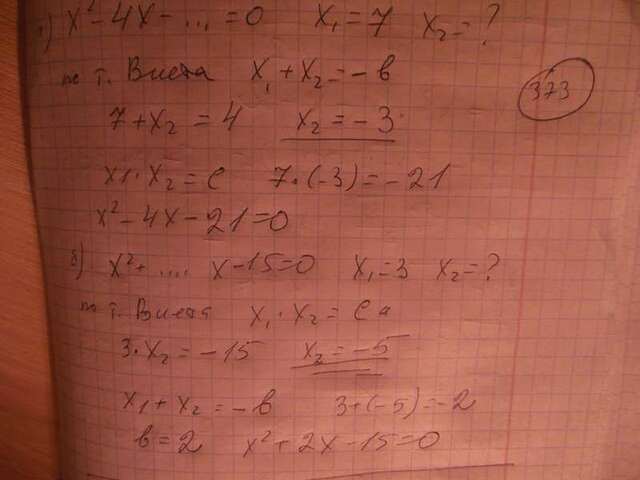 1) x² - 4x - ... = 0 x₁ = 7 x₂ = ?
по т. Виета x₁ + x₂ = -в
373
7 + x₂ = 4 x₂ = -3
x1 · x₂ = c 7·(-3) = -21
x² - 4x - 21 = 0
8) x² + .... x - 15 = 0 x₁ = 3 x₂ = ?
по т. Виета x₁ · x₂ = c
3·x₂ = -15 x₂ = -5
x₁ + x₂ = -в 3 + (-5) = -2
в = 2 x² + 2x - 15 = 0